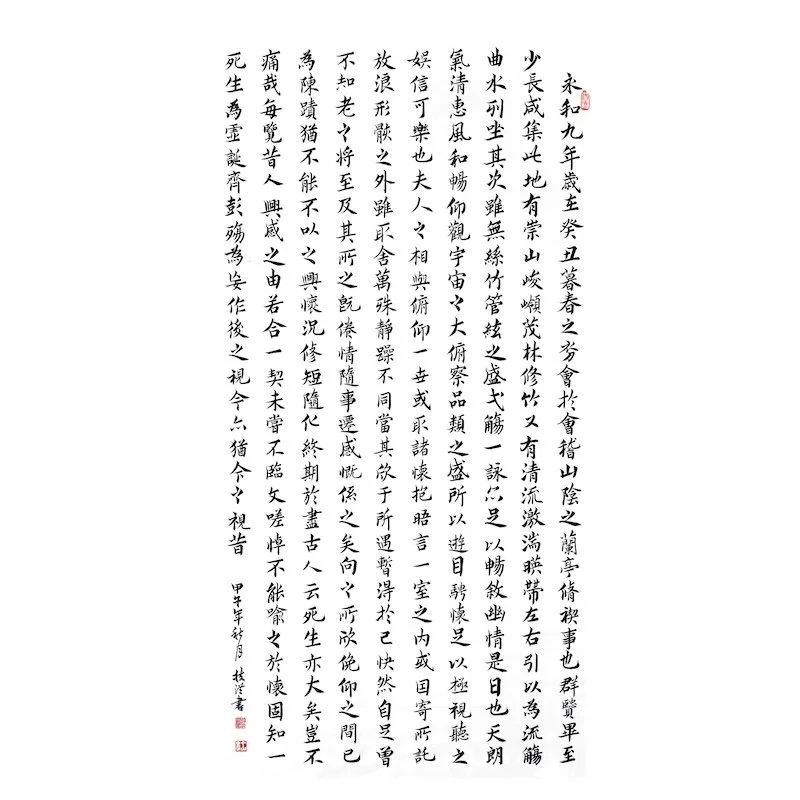 永和九年歲在癸丑暮春之初會於會稽山陰之蘭亭脩禊事也群賢畢至
少長咸集此地有崇山峻嶺茂林修竹又有清流激湍暎帶左右引以為流觴
曲水列坐其次雖無絲竹管絃之盛弌觴一詠亦足以暢敘幽情是日也天朗
氣清惠風和暢仰觀宇宙之大俯察品類之盛所以遊目騁懷足以極視聽之
娛信可樂也夫人之相與俯仰一世或取諸懷抱晤言一室之內或因寄所託
放浪形骸之外雖取舍萬殊靜躁不同當其欣于所遇暫得於己快然自足曾
不知老之將至及其所之既倦情隨事遷感慨係之矣向之所欣俛仰之間已
為陳蹟猶不能不以之興懷況修短隨化終期於盡古人云死生亦大矣豈不
痛哉每覽昔人興感之由若合一契未嘗不臨文嗟悼不能喻之於懷固知一
死生為虛誕齊彭殤為妄作後之視今亦猶今之視昔
甲午年秋月 書